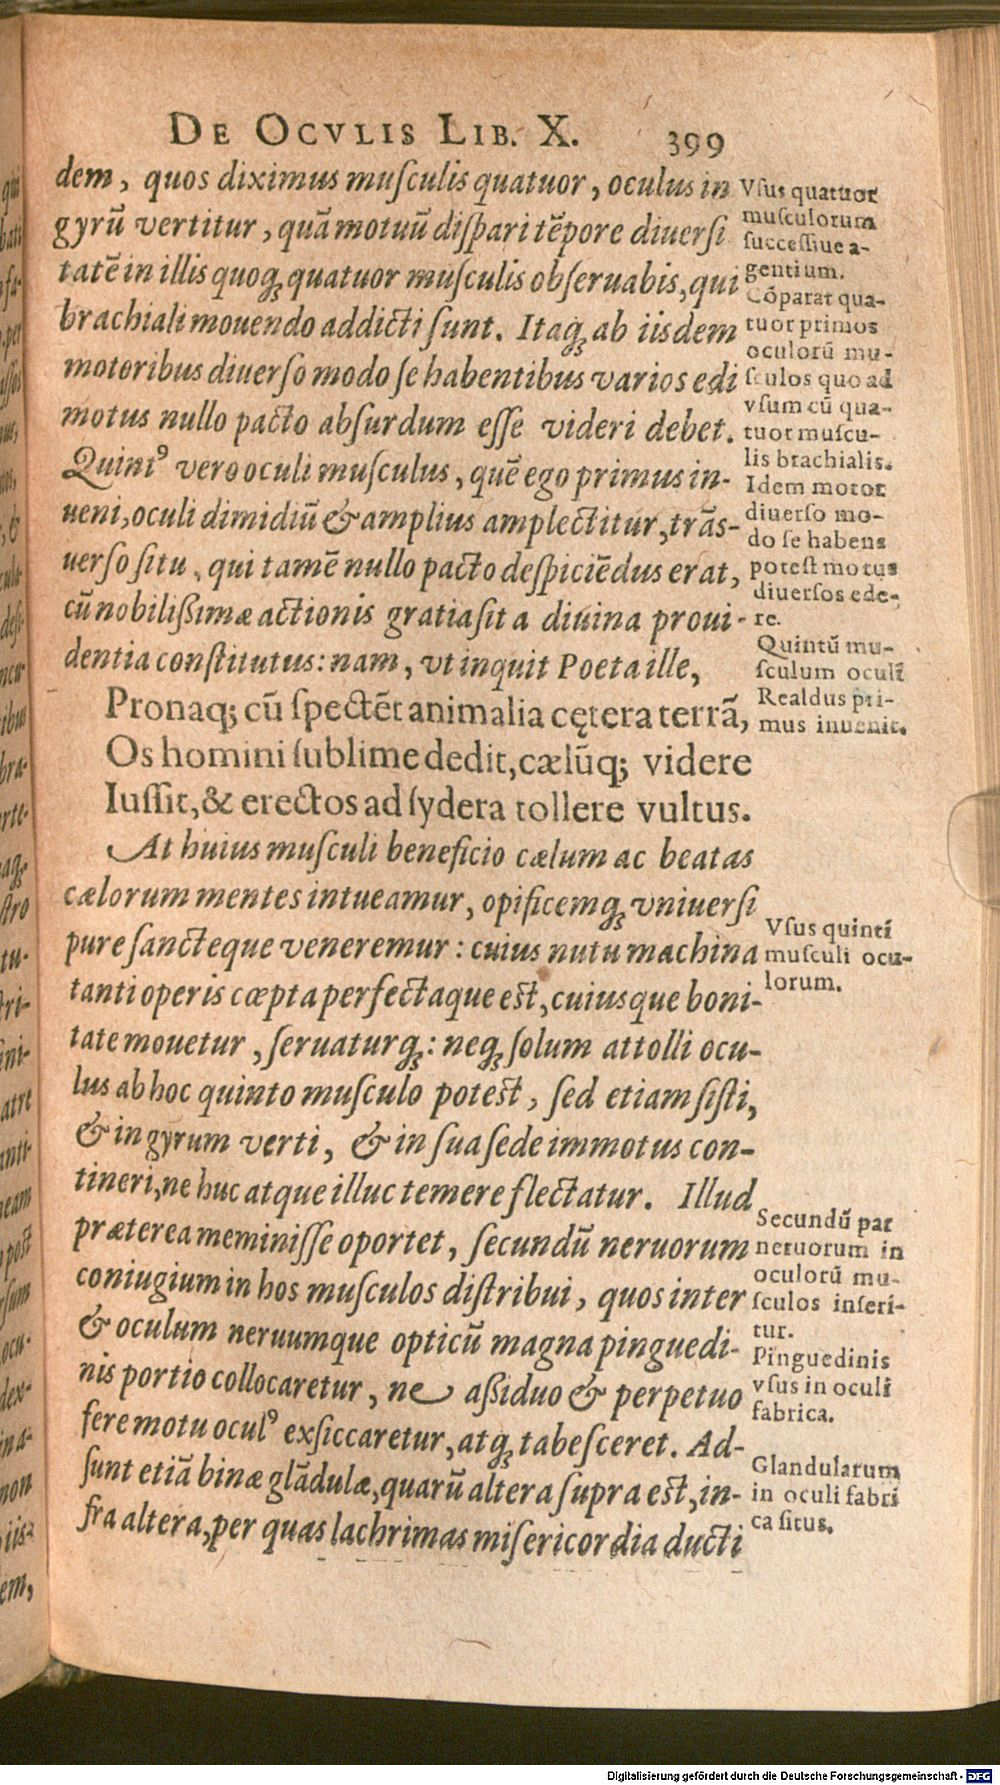 DE OCVLIS LIB. X. 399
dem, quos diximus muſculis quatuor, oculus in
gyrũ vertitur, quã motuũ diſpari tẽpore diuerſi
tatẽ in illis quoq; quatuor muſculis obſeruabis, qui
brachiali mouendo addicti ſunt. Itaq; ab iisdem
motoribus diuerſo modo ſe habentibus varios edi
motus nullo pacto abſurdum eſſe videri debet.
Quintꝰ vero oculi muſculus, quẽ ego primus in-
ueni, oculi dimidiũ & amplius amplectitur, trãs-
uerſo ſitu, qui tamẽ nullo pacto deſpiciẽdus erat,
cũ nobilißimæ actionis gratia ſit a diuina proui-
dentia conſtitutus: nam, vt inquit Poeta ille,
Pronaq; cũ ſpectẽt animalia cętera terrã,
Os homini ſublime dedit, cælũq; videre
Iuſſit, & erectos ad ſydera tollere vultus.
At huius muſculi beneficio cælum ac beatas
cælorum mentes intueamur, opificemq; vniuerſi
pure ſancteque veneremur: cuius nutu machina
tanti operis cœpta perfectaque eſt, cuiusque boni-
tate mouetur, ſeruaturq;: neq; ſolum attolli ocu-
lus ab hoc quinto muſculo poteſt, ſed etiam ſiſti,
& in gyrum verti, & in ſua ſede immotus con-
tineri, ne huc atque illuc temere flectatur. Illud
præterea meminiſſe oportet, ſecundũ neruorum
coniugium in hos muſculos diſtribui, quos inter
& oculum neruumque opticũ magna pinguedi-
nis portio collocaretur, ne aßiduo & perpetuo
fere motu oculꝰ exſiccaretur, atq; tabeſceret. Ad-
ſunt etiã binæ glãdulæ, quarũ altera ſupra eſt, in-
fra altera, per quas lachrimas miſericordia ducti
Vſus quatuor
muſculorum
ſucceſſiue a-
gentium.
Cõparat qua-
tuor primos
oculorũ mu-
ſculos quo ad
vſum cũ qua-
tuor muſcu-
lis brachialis.
Idem motor
diuerſo mo-
do ſe habens
poteſt motus
diuerſos ede-
re.
Quintũ mu-
ſculum oculi
Realdus pri-
mus inuenit.
Vſus quinti
muſculi ocu-
lorum.
Secundũ par
neruorum in
oculorũ mu-
ſculos inſeri-
tur.
Pinguedinis
vſus in oculi
fabrica.
Glandularum
in oculi fabri
ca ſitus.
Digitalisierung gefördert durch die Deutsche Forschungsgemeinschaft - DFG